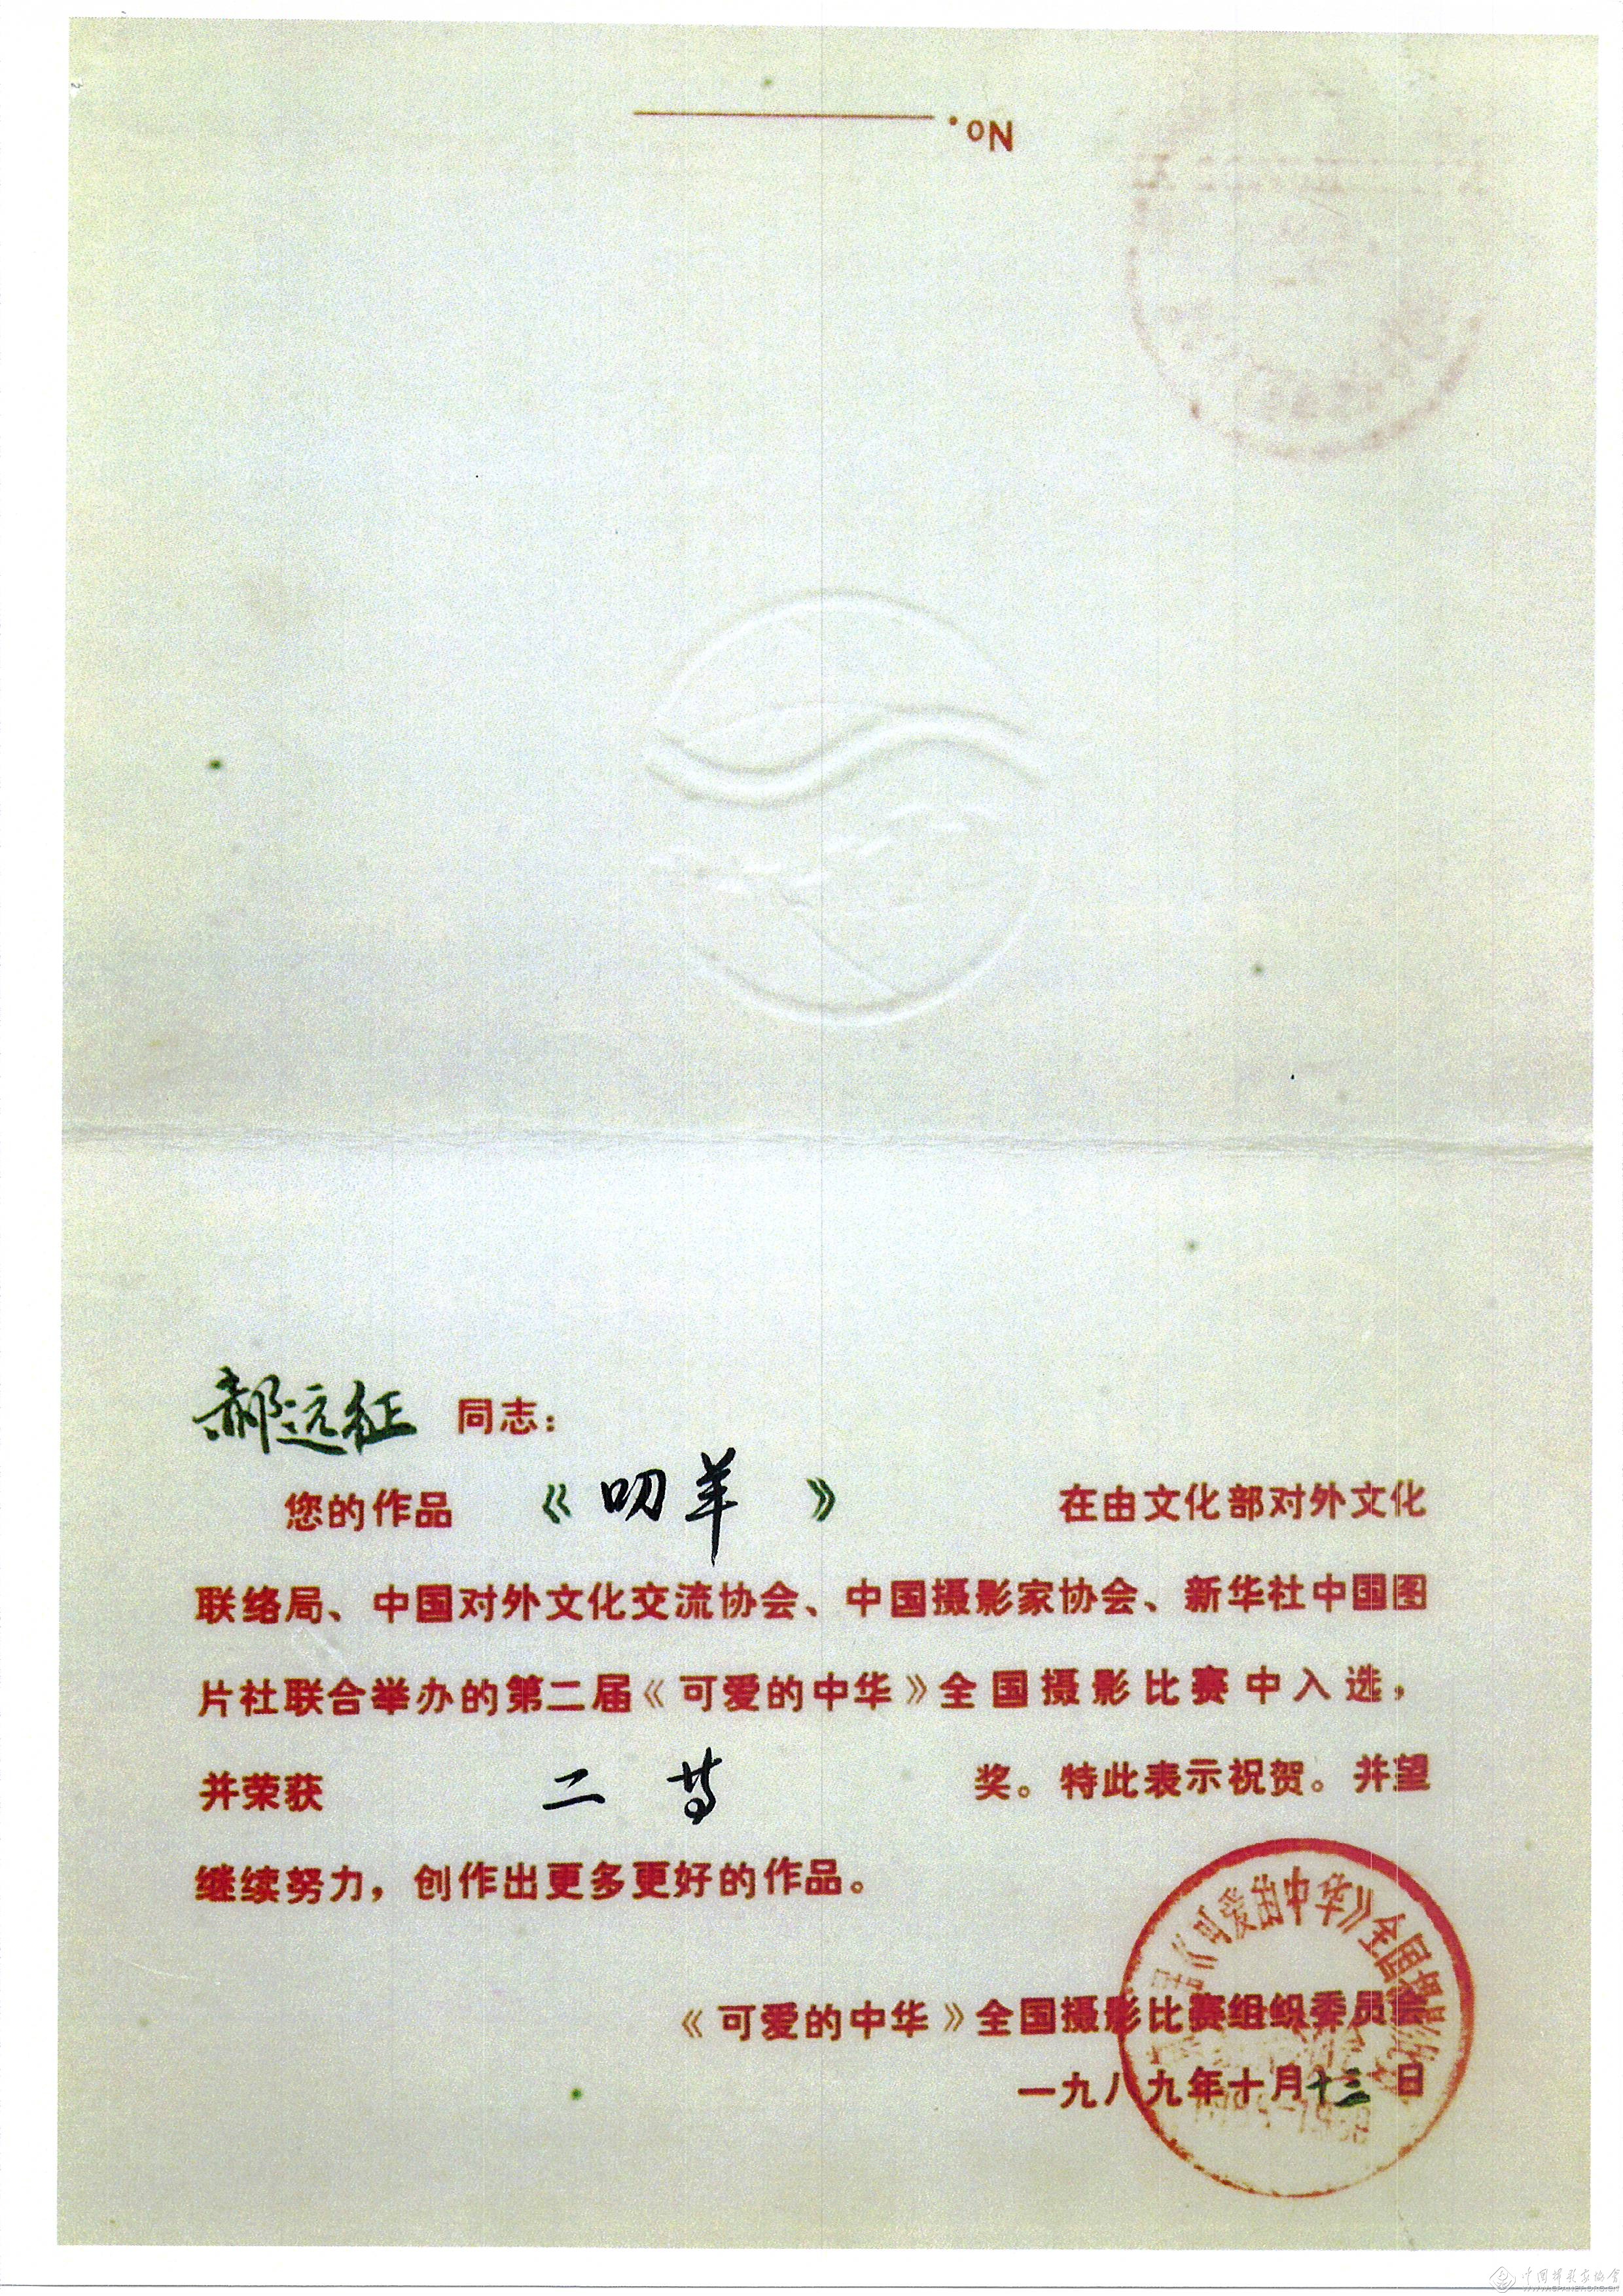 No.
郝远征 同志：
您的作品 《 叼羊 》 在由文化部对外文化
联络局、中国对外文化交流协会、中国摄影家协会、新华社中国图
片社联合举办的第二届《可爱的中华》全国摄影比赛中入选，
并荣获 二等 奖。特此表示祝贺。并望
继续努力，创作出更多更好的作品。
《可爱的中华》全国摄影比赛组织委员会
一九八九年十月十三日
《可爱的中华》全国摄影
中国摄影家协会